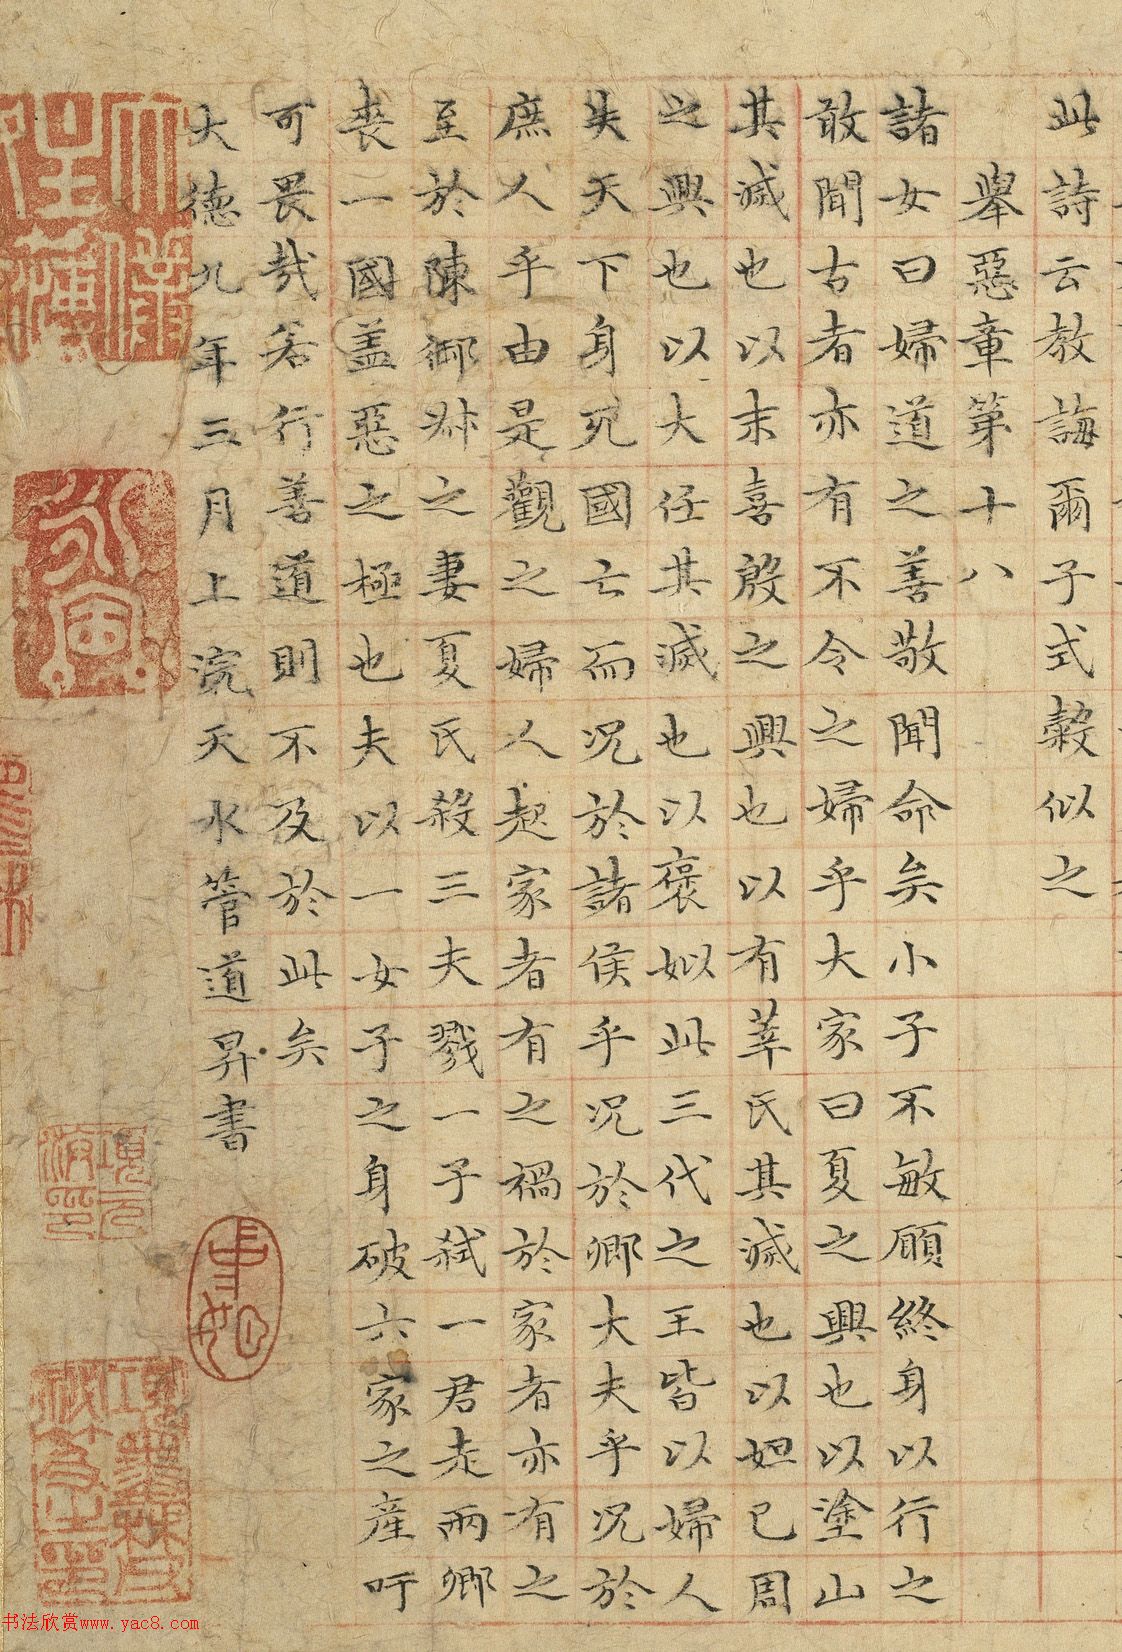 此詩云教誨爾子式穀似之
舉惡章第十八
諸女曰婦道之善敬聞命矣小子不敏願終身以行之
敢聞古者亦有不令之婦乎大家曰夏之興也以塗山
其滅也以末喜殷之興也以有莘氏其滅也以妲己周
之興也以大任其滅也以褒姒此三代之王皆以婦人
失天下身死國亡而況於諸侯乎況於卿大夫乎況於
庶人乎由是觀之婦人起家者有之禍於家者亦有之
至於陳御叔之妻夏氏殺三夫戮一子弒一君走兩卿
喪一國盖惡之極也夫以一女子之身破六家之產吁
可畏哉若行善道則不及於此矣
大德九年三月上浣天水管道昇書
書法欣赏www.yac8.com